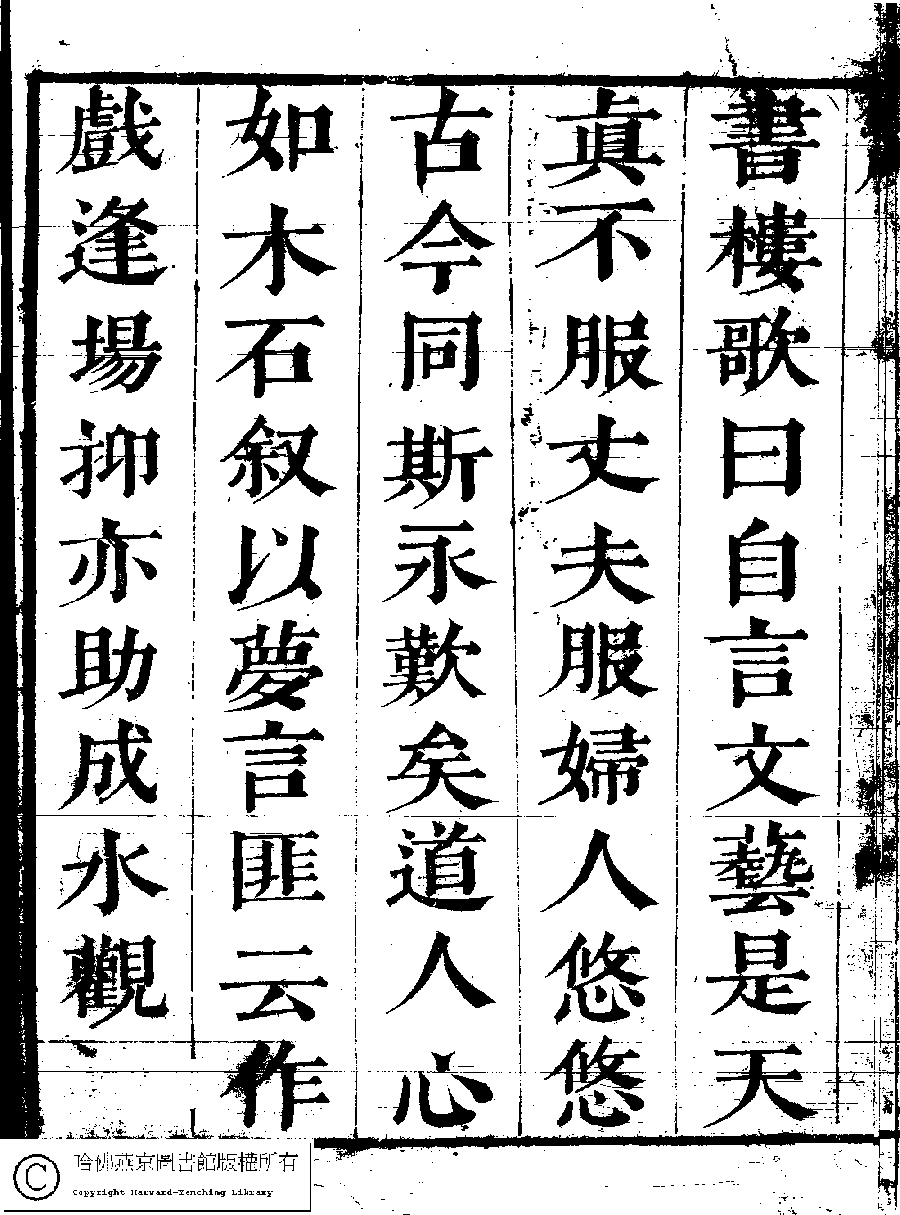 書樓歌曰自言文藝是天
眞不服丈夫服婦人悠悠
古今同斯永歎矣道人心
如木石叙以夢言匪云作
戲逢場抑亦助成水觀
哈佛燕京圖書館版權所有
Copyright Harvard-Yenching Library